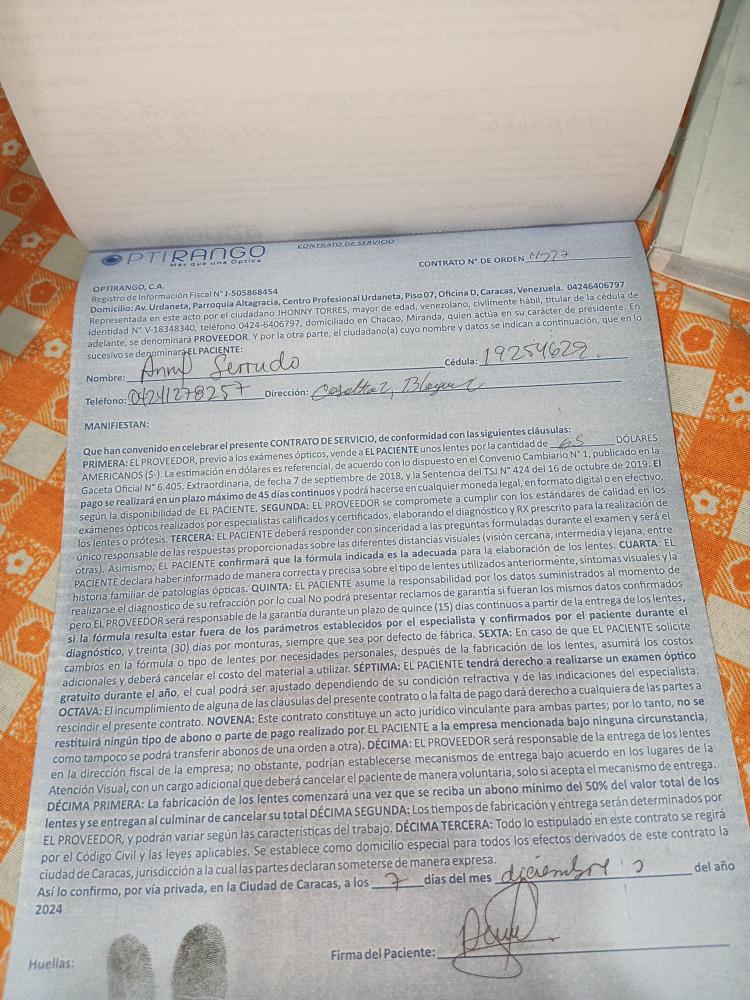 CONTRATO DE SERVICIO
OPTIRANGO
Más que una Óptica
CONTRATO N° DE ORDEN
OPTIRANGO, C.A.
Registro de Información Fiscal N° J-505868454
Domicilio: Av. Urdaneta, Parroquia Altagracia, Centro Profesional Urdaneta, Piso 07, Oficina D, Caracas, Venezuela. 04246406797
Representada en este acto por el ciudadano JHONNY TORRES, mayor de edad, venezolano, civilmente hábil, titular de la cédula de
identidad N° V-18348340, teléfono 0424-6406797, domiciliado en Chacao, Miranda, quien actúa en su carácter de presidente. En
adelante, se denominará PROVEEDOR. Y por la otra parte, el ciudadano(a) cuyo nombre y datos se indican a continuación, que en lo
sucesivo se denominará EL PACIENTE:
Nombre: Serrudo Cédula: 19254629
Teléfono: 04241278257 Dirección:
MANIFIESTAN:
Que han convenido en celebrar el presente CONTRATO DE SERVICIO, de conformidad con las siguientes cláusulas:
PRIMERA: EL PROVEEDOR, previo a los exámenes ópticos, vende a EL PACIENTE unos lentes por la cantidad de 65 DÓLARES
AMERICANOS ($-). La estimación en dólares es referencial, de acuerdo con lo dispuesto en el Convenio Cambiario N° 1, publicado en la
Gaceta Oficial N° 6.405, Extraordinaria, de fecha 7 de septiembre de 2018, y la Sentencia del TSJ N° 424 del 16 de octubre de 2019. El
pago se realizará en un plazo máximo de 45 días continuos y podrá hacerse en cualquier moneda legal, en formato digital o en efectivo,
según la disponibilidad de EL PACIENTE. SEGUNDA: EL PROVEEDOR se compromete a cumplir con los estándares de calidad en los
exámenes ópticos realizados por especialistas calificados y certificados, elaborando el diagnóstico y RX prescrito para la realización de
los lentes o prótesis. TERCERA: EL PACIENTE deberá responder con sinceridad a las preguntas formuladas durante el examen y será el
único responsable de las respuestas proporcionadas sobre las diferentes distancias visuales (visión cercana, intermedia y lejana, entre
otras). Asimismo, EL PACIENTE confirmará que la fórmula indicada es la adecuada para la elaboración de los lentes. CUARTA: EL
PACIENTE declara haber informado de manera correcta y precisa sobre el tipo de lentes utilizados anteriormente, síntomas visuales y la
historia familiar de patologías ópticas. QUINTA: EL PACIENTE asume la responsabilidad por los datos suministrados al momento de
realizarse el diagnostico de su refracción por lo cual No podrá presentar reclamos de garantía si fueran los mismos datos confirmados
pero EL PROVEEDOR será responsable de la garantía durante un plazo de quince (15) días continuos a partir de la entrega de los lentes,
si la fórmula resulta estar fuera de los parámetros establecidos por el especialista y confirmados por el paciente durante el
diagnóstico, y treinta (30) días por monturas, siempre que sea por defecto de fábrica. SEXTA: En caso de que EL PACIENTE solicite
cambios en la fórmula o tipo de lentes por necesidades personales, después de la fabricación de los lentes, asumirá los costos
adicionales y deberá cancelar el costo del material a utilizar. SÉPTIMA: EL PACIENTE tendrá derecho a realizarse un examen óptico
gratuito durante el año, el cual podrá ser ajustado dependiendo de su condición refractiva y de las indicaciones del especialista.
OCTAVA: El incumplimiento de alguna de las cláusulas del presente contrato o la falta de pago dará derecho a cualquiera de las partes a
rescindir el presente contrato. NOVENA: Este contrato constituye un acto jurídico vinculante para ambas partes; por lo tanto, no se
restituirá ningún tipo de abono o parte de pago realizado por EL PACIENTE a la empresa mencionada bajo ninguna circunstancia,
como tampoco se podrá transferir abonos de una orden a otra). DÉCIMA: EL PROVEEDOR será responsable de la entrega de los lentes
en la dirección fiscal de la empresa; no obstante, podrían establecerse mecanismos de entrega bajo acuerdo en los lugares de la
Atención Visual, con un cargo adicional que deberá cancelar el paciente de manera voluntaria, solo si acepta el mecanismo de entrega.
DÉCIMA PRIMERA: La fabricación de los lentes comenzará una vez que se reciba un abono mínimo del 50% del valor total de los
lentes y se entregan al culminar de cancelar su total DÉCIMA SEGUNDA: Los tiempos de fabricación y entrega serán determinados por
EL PROVEEDOR, y podrán variar según las características del trabajo. DÉCIMA TERCERA: Todo lo estipulado en este contrato se regirá
por el Código Civil y las leyes aplicables. Se establece como domicilio especial para todos los efectos derivados de este contrato la
ciudad de Caracas, jurisdicción a la cual las partes declaran someterse de manera expresa.
Así lo confirmo, por vía privada, en la Ciudad de Caracas, a los 7 días del mes diciembre del año
2024
Huellas: Firma del Paciente: